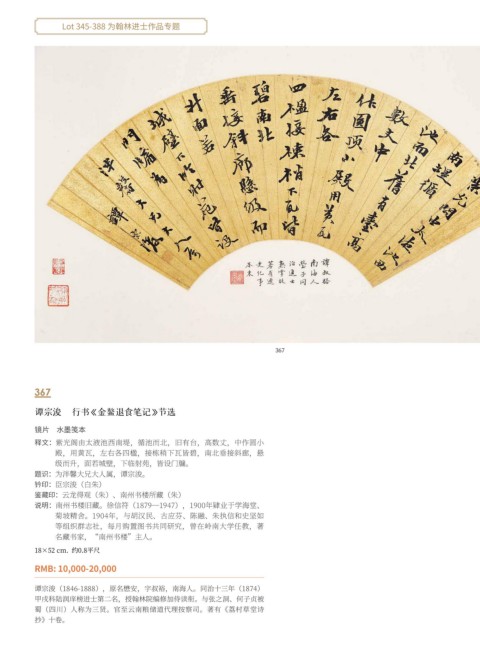 Lot 345-388 为翰林进士作品专题
367
367
谭宗浚 行书《金鳌退食笔记》节选
镜片 水墨笺本
释文：紫光阁由太液池西南堤，循池而北，旧有台，高数丈，中作圆小
殿，用黄瓦，左右各四楹，接栋稍下瓦皆碧，南北垂接斜廊，悬
级而升，面若城壁，下临射苑，皆设门牖。
题识：为泮馨大兄大人属，谭宗浚。
钤印：臣宗浚（白朱）
鉴藏印：云龙得观（朱）、南州书楼所藏（朱）
说明：南州书楼旧藏。徐信符（1879—1947），1900年肄业于学海堂、
菊坡精舍。1904年，与胡汉民、古应芬、陈融、朱执信和史坚如
等组织群志社，每月购置图书共同研究，曾在岭南大学任教，著
名藏书家，“南州书楼”主人。
18×52 cm. 约0.8平尺
RMB: 10,000-20,000
谭宗浚（1846-1888），原名懋安，字叔裕，南海人。同治十三年（1874）
甲戌科陆润庠榜进士第二名，授翰林院编修加侍读衔。与张之洞、何子贞被
蜀（四川）人称为三贤。官至云南粮储道代理按察司。著有《荔村草堂诗
抄》十卷。